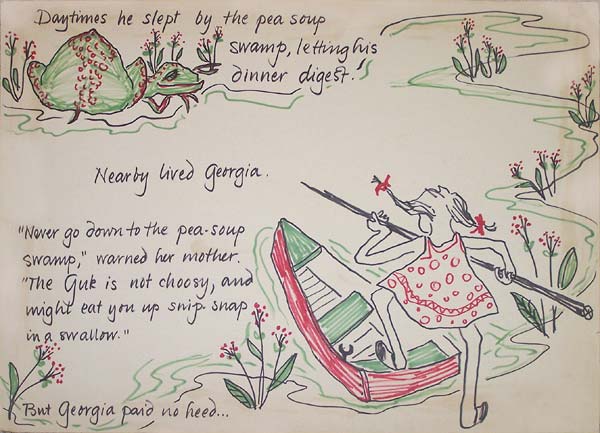 Daytimes he slept by the pea soup
swamp, letting his
dinner digest.
Nearby lived Georgia.
"Never go down to the pea-soup
swamp," warned her mother.
"The Guk is not choosy, and
might eat you up snip-snap
in a swallow."
But Georgia paid no heed...